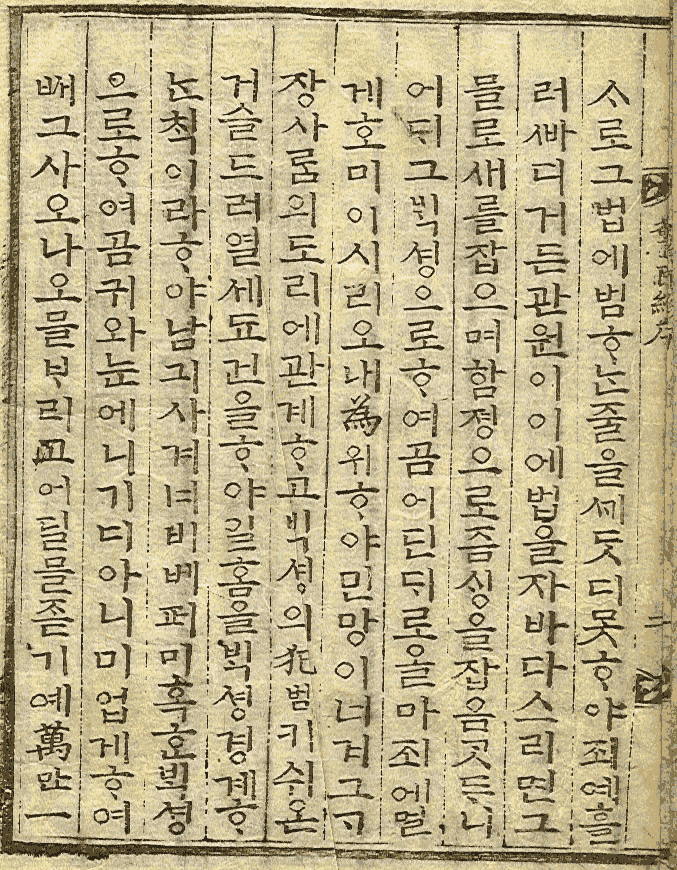 警民編序
二
스로그법에범ᄒᆞᄂᆞᆫ줄을ᄭᆡᄃᆞᆺ디못ᄒᆞ야죄예흘
러ᄲᅡ디거든관원이이에법을자바다스리면그
믈로새를잡으며함졍으로즘ᄉᆡᆼ을잡음ᄀᆞᆺᄃᆞ니
어ᄃᆡ그ᄇᆡᆨ셩으로ᄒᆞ여곰어딘ᄃᆡ로올마죄에멀
게호미이시리오내爲위ᄒᆞ야민망이너겨그ᄀᆞ
장사ᄅᆞᆷ의도리에관계ᄒᆞ고ᄇᆡᆨ셩의犯범키쉬온
거슬드러열세됴건을ᄒᆞ야일홈을ᄇᆡᆨ셩경계ᄒᆞ
ᄂᆞᆫ칙이라ᄒᆞ야남긔사겨너비베퍼미혹ᄒᆞᆫᄇᆡᆨ셩
으로ᄒᆞ여곰귀와눈에니기디아니미업게ᄒᆞ여
ᄡᅥ그사오나오믈ᄇᆞ리고어딜믈좃기예萬만一